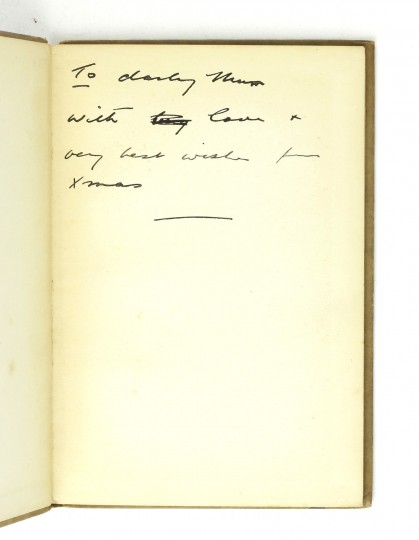 To darling Mum
with love +
very best wishes for
Xmas